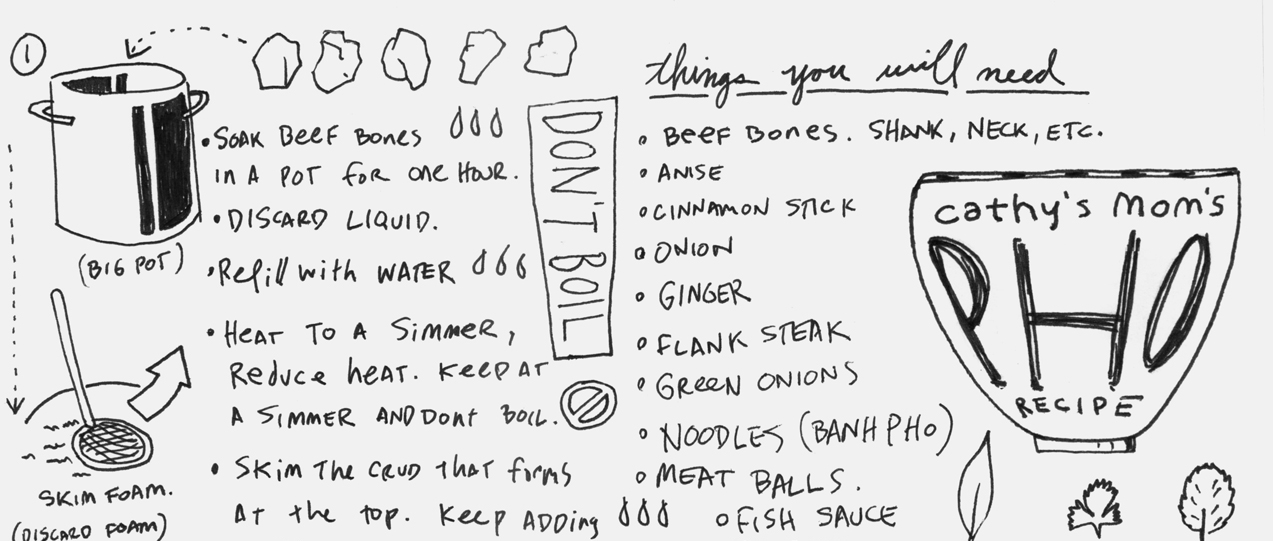 1
SOAK BEEF BONES
IN A POT FOR ONE HOUR.
DISCARD LIQUID.
Refill with WATER
HEAT TO A SIMMER,
REDUCE HEAT. KEEP AT
A SIMMER AND DONT BOIL.
SKIM THE CRUD THAT FORMS
AT the top. KEEP ADDING
(BIG POT)
SKIM FOAM.
(DISCARD FOAM)
DON'T BOIL
things you will need
BEEF BONES. SHANK, NECK, ETC.
ANISE
CINNAMON STICK
ONION
GINGER
FLANK STEAK
GREEN ONIONS
NOODLES (BANH PHO)
MEAT BALLS.
FISH SAUCE
cathy's mom's
PHO
RECIPE